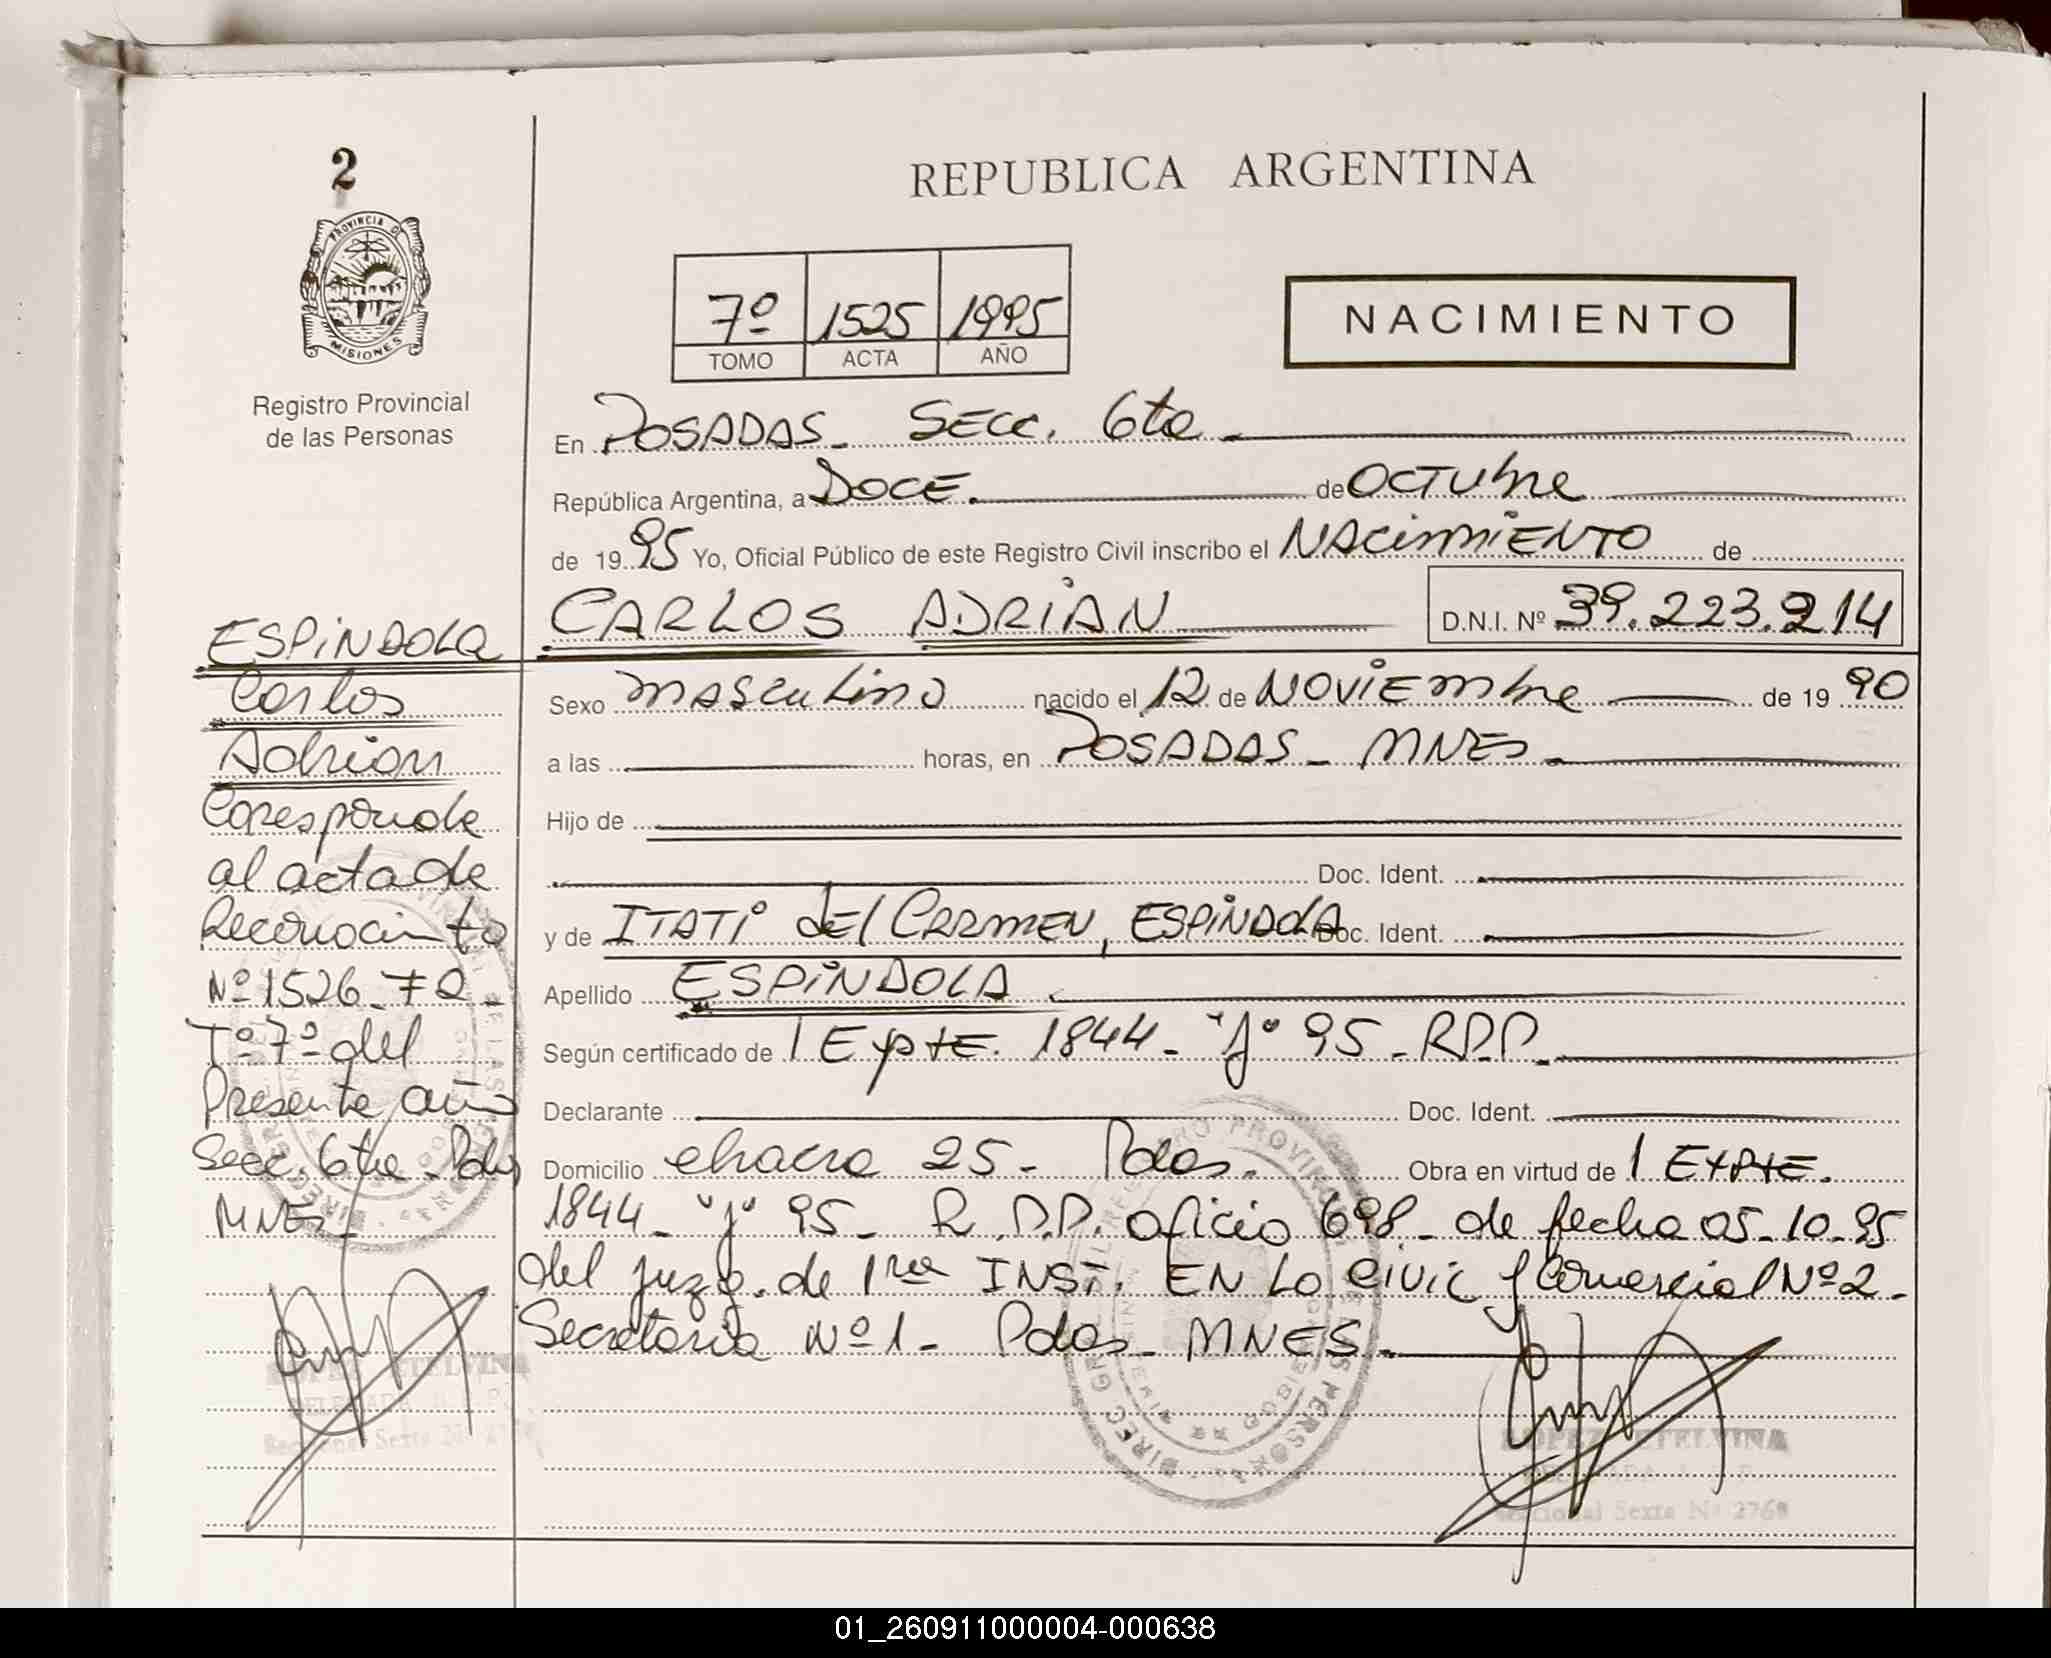 2
PROVINCIA D
MISIONES
Registro Provincial
de las Personas
REPUBLICA ARGENTINA
7º 1525 1995
TOMO ACTA AÑO
NACIMIENTO
En POSADAS - SECC. 6ta -
República Argentina, a DOCE. de OCTUbre
de 19 95 Yo, Oficial Público de este Registro Civil inscribo el NACimiENTO de
CARLOS ADRIAN D.N.I. Nº 39.223.214
Sexo masculino nacido el 12 de NOViEmbre de 19 90
a las horas, en POSADAS - MNES -
Hijo de
Doc. Ident.
y de ITATI dEl CARMEN, ESPINDOLA Doc. Ident.
Apellido ESPINDOLA
Según certificado de 1 ExptE. 1844 - "J" 95 - RP.P.
Declarante Doc. Ident.
Domicilio chacra 25 - Pdas. Obra en virtud de 1 EXPTE.
1844 - "J" 95 - R.P.P. oficio 698 - de fecha 05-10-95
del juzg. de 1ra INST. EN Lo Civic y Comercial Nº 2 -
Secretaria Nº 1 - Pdas - MNES -
ESPINDOLA
Carlos
Adrian
Coresponde
al acta de
Reconocimto
Nº 1526 -
Tº 7º del
Presente año
Secc. 6ta - Pdas
MNES
LOPEZ ETELVINA
Seccional Sexta Nº 2768
LOPEZ ETELVINA
Seccional Sexta Nº 276
01_260911000004-000638